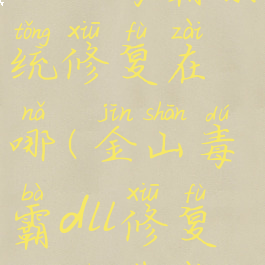 tǒng xiū fù zài
统修复在
nǎ jīn shān dú
哪(金山毒
bà xiū fù
霸dll修复